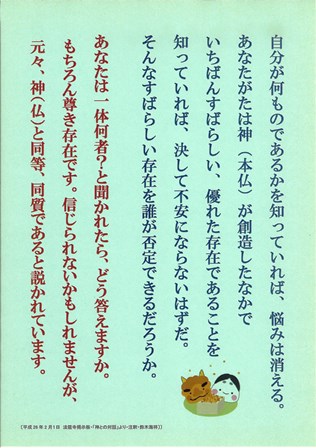 自分が何ものであるかを知っていれば、悩みは消える。
あなたがたは神（本仏）が創造したなかで
いちばんすばらしい、優れた存在であることを
知っていれば、決して不安にならないはずだ。
そんなすばらしい存在を誰が否定できるだろうか。
あなたは一体何者？と聞かれたら、どう答えますか。
もちろん尊き存在です。信じられないかもしれませんが、
元々、神（仏）と同等、同質であると説かれています。